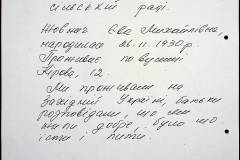 сільській раді.
Жовнач Єва Михайлівна,
народилася 26.11.1930р.
Проживає по вулиці
Кірова, 12.
Ми проживали на
Західній Україні, батьки
розповідали, що они
жили добре, було що
їсти і пити.